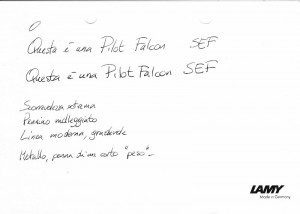 Questa è una Pilot Falcon SEF
Questa è una Pilot Falcon SEF
Scorrevolezza estrema
Pennino molleggiato
Linea moderna, gradevole
Metallo, penna di un certo "peso"
LAMY
Made in Germany